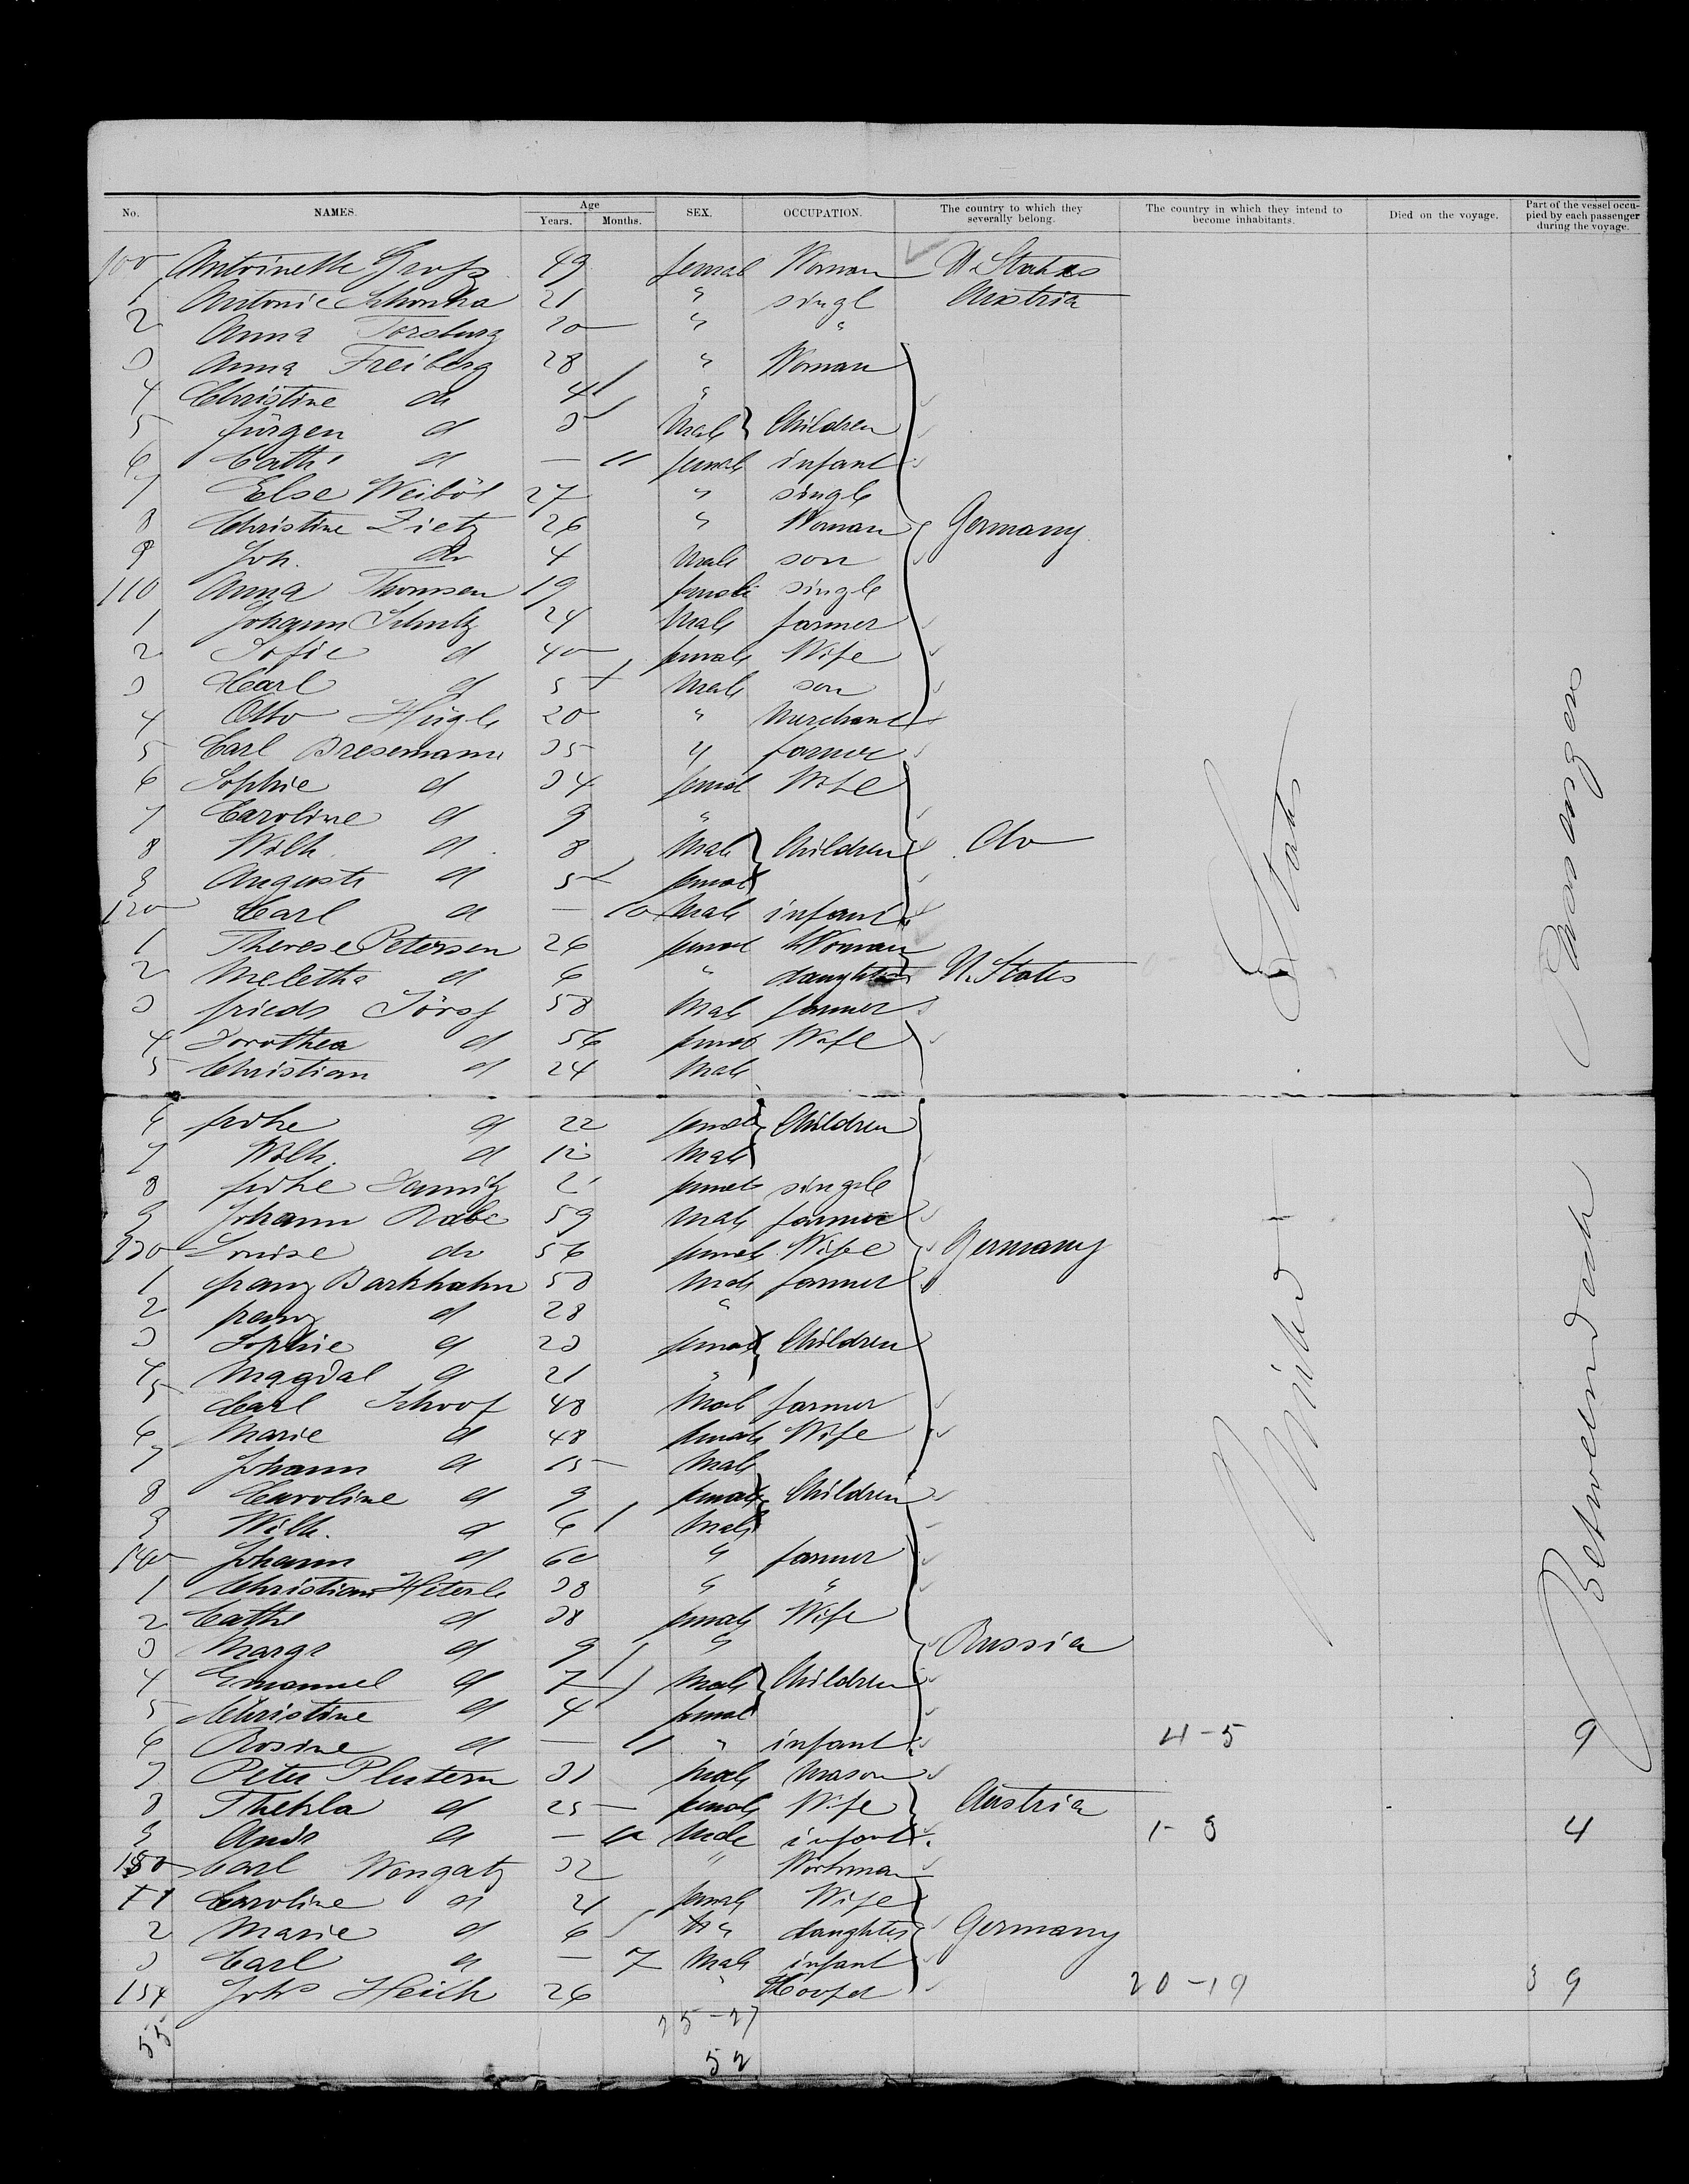 No. NAMES. Age Years. Months. SEX. OCCUPATION. The country to which they severally belong. The country in which they intend to become inhabitants. Died on the voyage. Part of the vessel occupied by each passenger during the voyage.
100 Antoinette Gross 49 femal Woman U. States
1 Antonie 21 " singl Austria
2 Anna 20 " "
3 Anna Freiberg 28 " Woman
4 Christine do 4 "
5 Jürgen d 3 Male Children
6 Cath. d — 11 female infant
7 Else Weiböl 27 " single
8 Christine Zietz 26 " Woman Germany
9 Joh. do 4 Male son
110 Anna Thomsen 19 female single
1 Johann Schultz 24 Male farmer
2 Sofie d 40 female Wife
3 Karl d 5 Male son
4 Otto Hügle 20 " Merchant
5 Carl Bresemann 35 " farmer
6 Sophie d 34 femal Wife
7 Caroline d 9 "
8 Wilh. d 8 Male Children do
9 Auguste d 5 female
120 Carl d — 10 Male infant
1 Therese Petersen 26 femal Woman
2 Meletha d 6 " daughter U. States
3 friedr 58 Male farmer
4 Dorothea d 56 female Wife
5 Christian d 24 Male
6 d 22 female Children
7 Wilh. d 12 Male
8 female single
9 Johann Rabe 59 Male farmer
130 Louise do 56 female Wife Germany
1 franz Barkhahn 58 Male farmer
2 franz d 28 "
3 Sophie d 23 female Children
4 Magdal d 21 "
5 Carl Schoof 48 Male farmer
6 Marie d 48 female Wife
7 Johann d 15 Male
8 Caroline d 9 female Children
9 Wilh. d 6 Male
140 Johann d 60 " farmer
1 Christian Heterle 38 " "
2 Cathe d 38 female Wife
3 Margr d 9 " Russia
4 Emanuel d 7 Male Children
5 Christine d 4 femal
6 Rosine d — 11 " infant 4-5 9
7 Peter 31 Male Mason
8 Thekla d 25 female Wife Austria
9 Andr d — Male infant 1-3 4
150 Carl Wongatz 32 " Workman
1 Caroline d 21 female Wife
2 Marie d 6 " daughter Germany
3 Carl d — 7 Male infant
154 Johs Heick 26 " 20-19 39
55 25-27
52
United States
Betweendeck Passengers